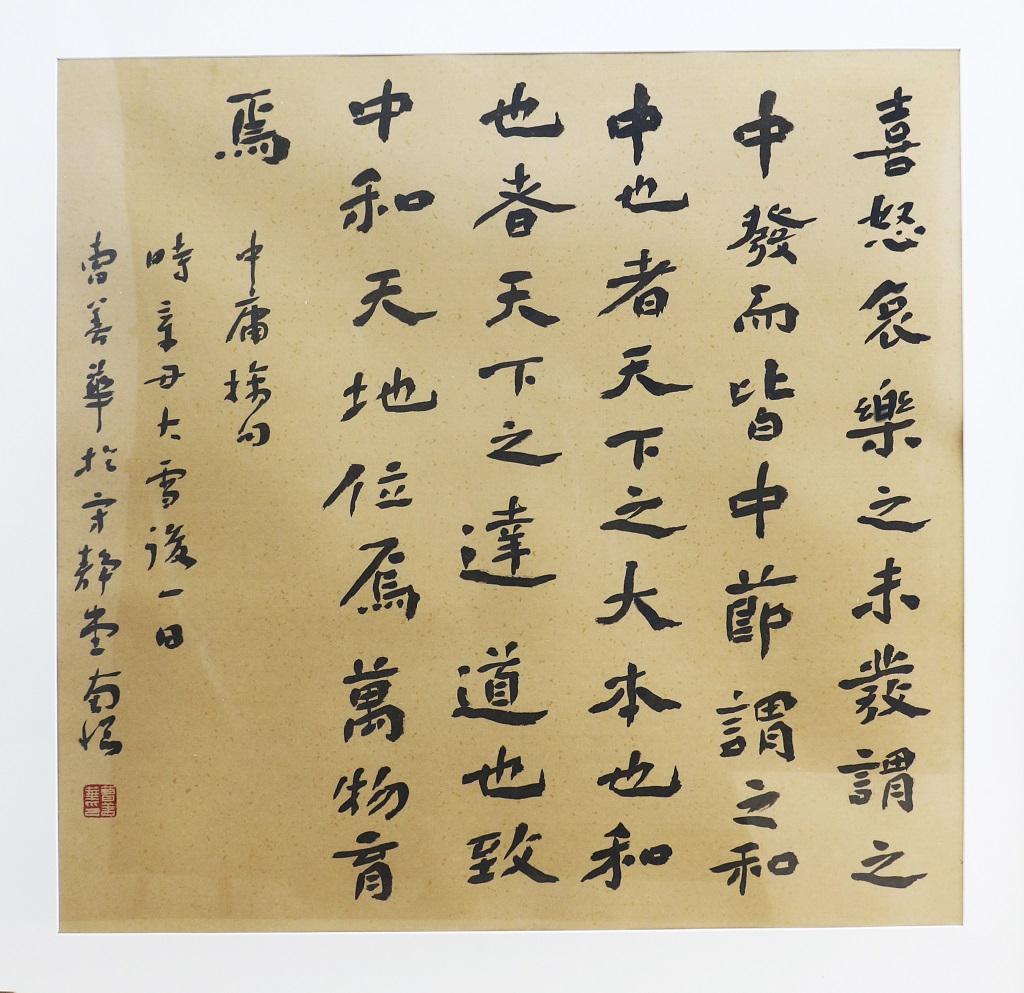 喜怒哀樂之未發謂之
中發而皆中節謂之和
中也者天下之大本也和
也者天下之達道也致
中和天地位焉萬物育
焉
中庸摘句
時辛丑大雪後一日
曹善華於守靜堂南